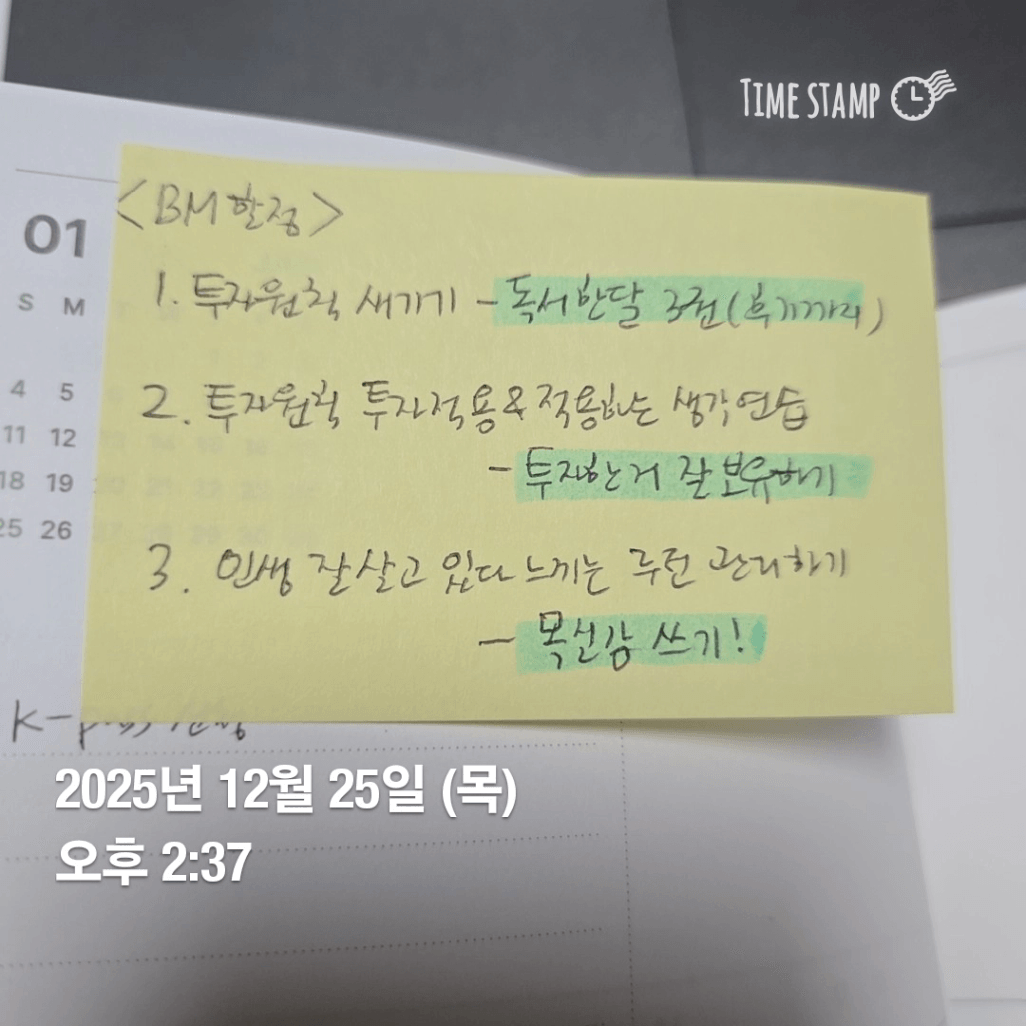 TIME STAMP
<BM 할 점>
01
S M
4 5
11 12
18 19
25 26
1. 투자원칙 새기기 - 독서 한달 3권 (후기까지)
2. 투자원칙 투자적용 & 적용하는 생각연습
- 투자한 거 잘 보유하기
3. 인생 잘 살고 있다 느끼는 루틴 관리하기
- 목실감 쓰기!
K-pass
2025년 12월 25일 (목)
오후 2:37